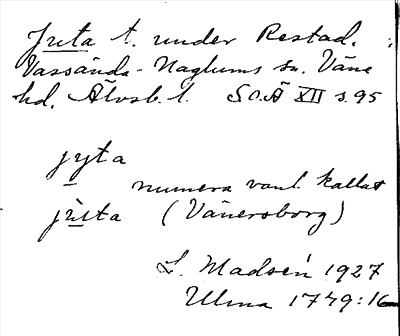 Juta t. under Restad.
Vassända-Naglums sn. Väne
hd. Älvsb. l. SOÄ XII s. 95
jyta
numera vanl. kallat
justa (Vänersborg)
L. Madsén 1927
Ulma 1749:16